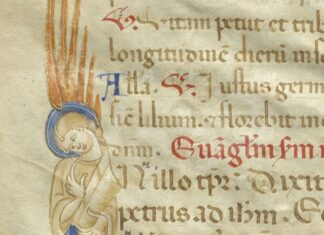 ℣. Vitam petiit et trib
longitudinē dierū in s
Alla. ℣. Iustus germ
sic lilium. ⁊ florebit in e
dnm. Euāgłm sm̄ m
N illo tp̄r. Dixit
petrus ad ihm̄. E